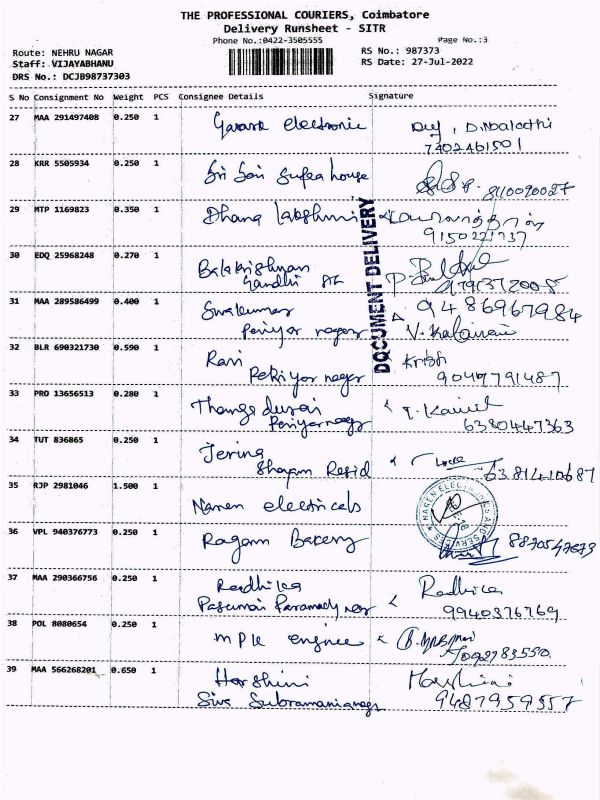 THE PROFESSIONAL COURIERS, Coimbatore
Delivery Runsheet - SITR
Phone No.:0422-3505555 Page No.:3
Route: NEHRU NAGAR RS No.: 987373
Staff: VIJAYABHANU RS Date: 27-Jul-2022
DRS No.: DCJB98737303
S No Consignment No Weight PCS Consignee Details Signature
27 MAA 291497408 0.250 1 electronic
7402461501
28 KRR 5505934 0.250 1 Sri Sai Supea house
29 MTP 1169823 0.350 1 Dhana lakshmi
9150221737
DOCUMENT DELIVERY
30 EDQ 25968248 0.270 1 Balakrishnan
Gandhi
31 MAA 289586499 0.400 1 Sivakumar 9486967984
Periyar nagar
32 BLR 690321730 0.590 1 Ravi
Periyar nagar 9047791487
33 PRO 13656513 0.280 1 Thangadurai
Periyar nagar 6380447363
34 TUT 836865 0.250 1 Jerina
Shayam Resid
35 RJP 2981046 1.500 1 Naren electricals
36 VPL 940376773 0.250 1 Ragam Bakery
37 MAA 290366756 0.250 1 Radhika Radhica
9940376769
38 POL 8080654 0.250 1 MPK enginee
39 MAA 566268201 0.650 1 Harshini
Siva Subramanianagr 9487959557